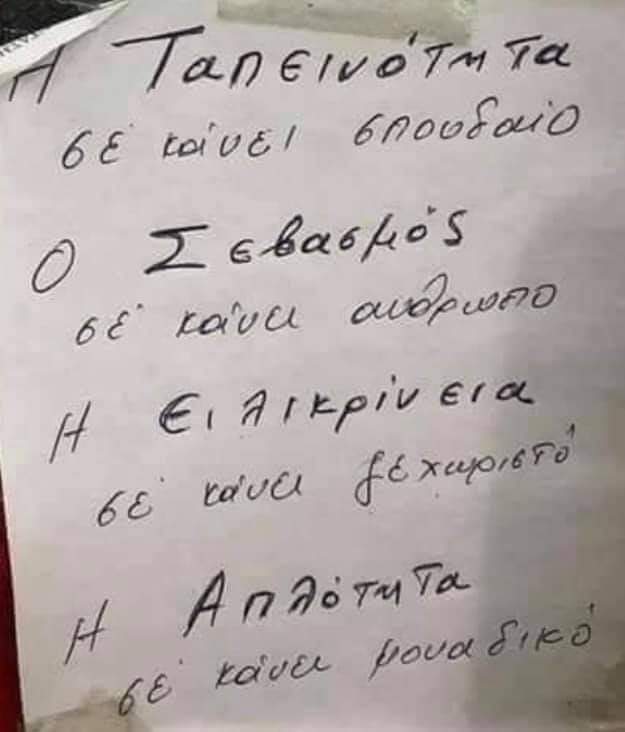 Η Ταπεινότητα
σέ κάνει σπουδαίο
Ο Σεβασμός
σέ κάνει ανθρωπο
Η Ειλικρίνεια
σέ κάνει ξέχωριστό
Η Απλότητα
σέ κάνει μοναδικό